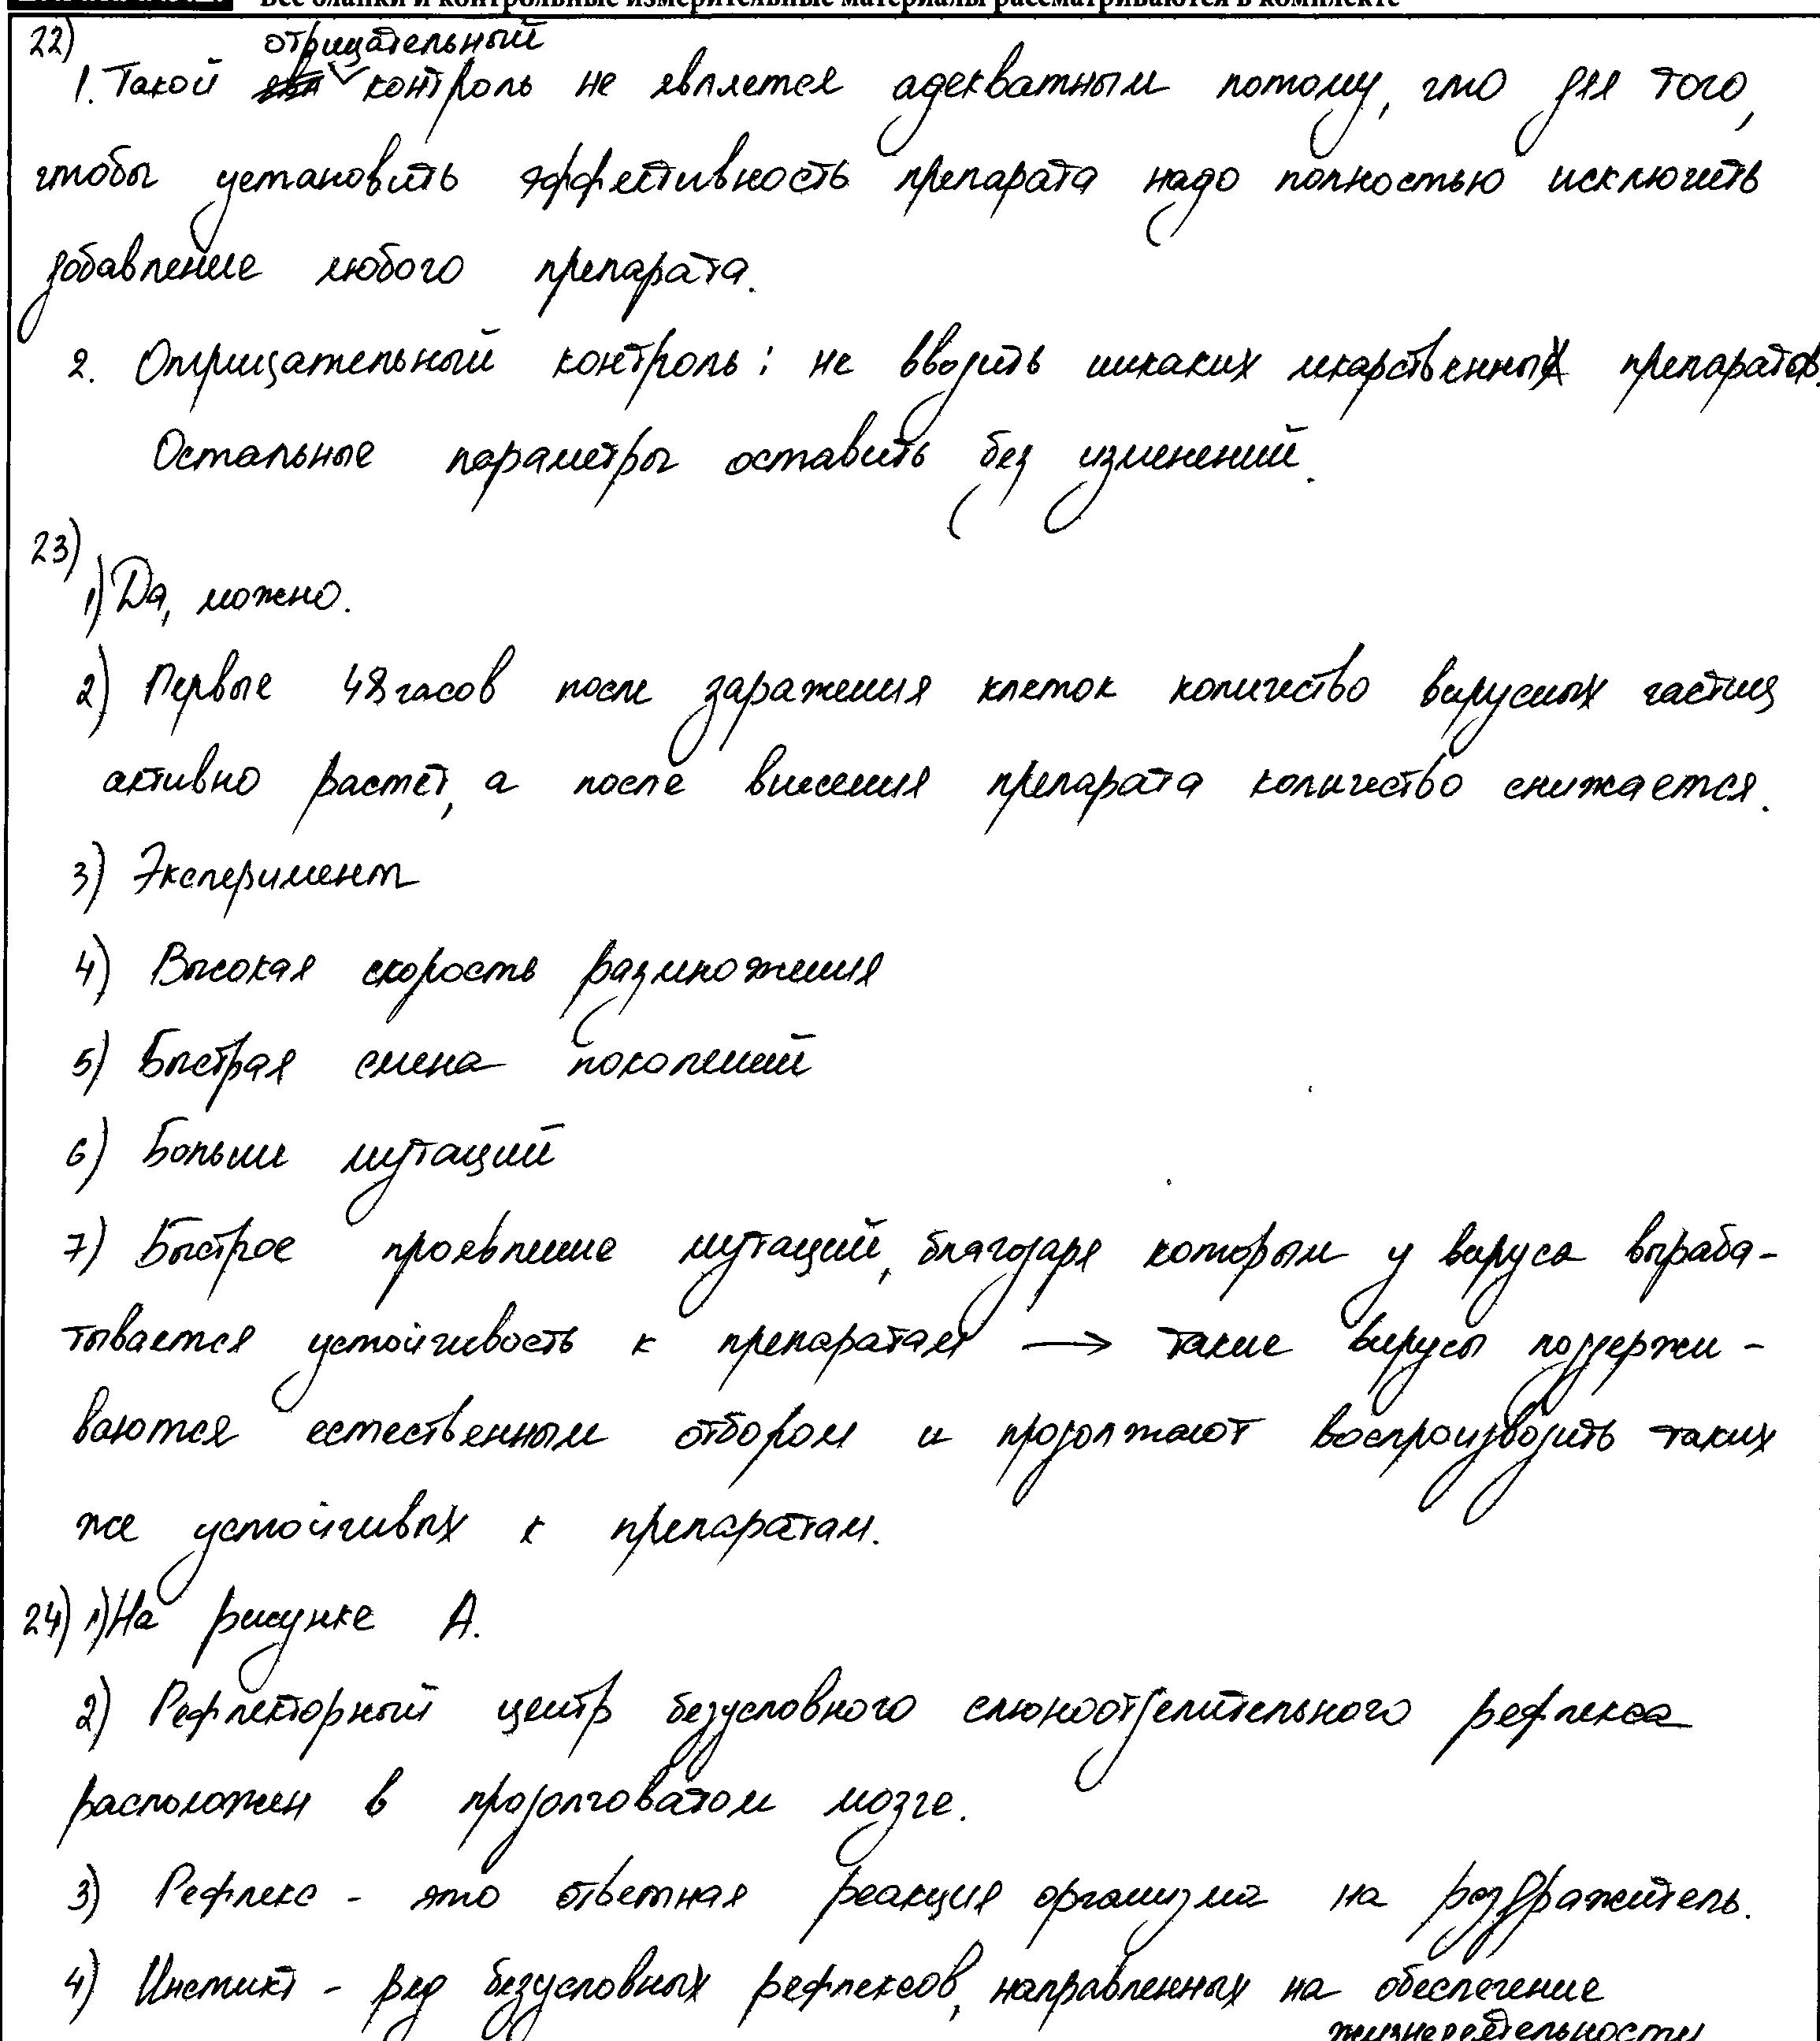 Все бланки и контрольные измерительные материалы рассматриваются в комплекте
22)
отрицательный
1. Такой контроль не является адекватным потому, что для того,
чтобы установить эффективность препарата надо полностью исключить
добавление любого препарата.
2. Отрицательный контроль: не вводить никаких лекарственных препаратов.
Остальные параметры оставить без изменений.
23)
1) Да, можно.
2) Первые 48 часов после заражения клеток количество вирусных частиц
активно растёт, а после внесения препарата количество снижается.
3) Эксперимент
4) Высокая скорость размножения
5) Быстрая смена поколений
6) Больше мутаций
7) Быстрое проявление мутаций, благодаря которым у вируса выраба-
тывается устойчивость к препаратам → такие вирусы поддержи-
ваются естественным отбором и продолжают воспроизводить таких
же устойчивых к препаратам.
24) 1) На рисунке А.
2) Рефлекторный центр безусловного слюноотделительного рефлекса
расположен в продолговатом мозге.
3) Рефлекс - это ответная реакция организма на раздражитель.
4) Инстикт - ряд безусловных рефлексов, направленных на обеспечение
жизнедеятельности